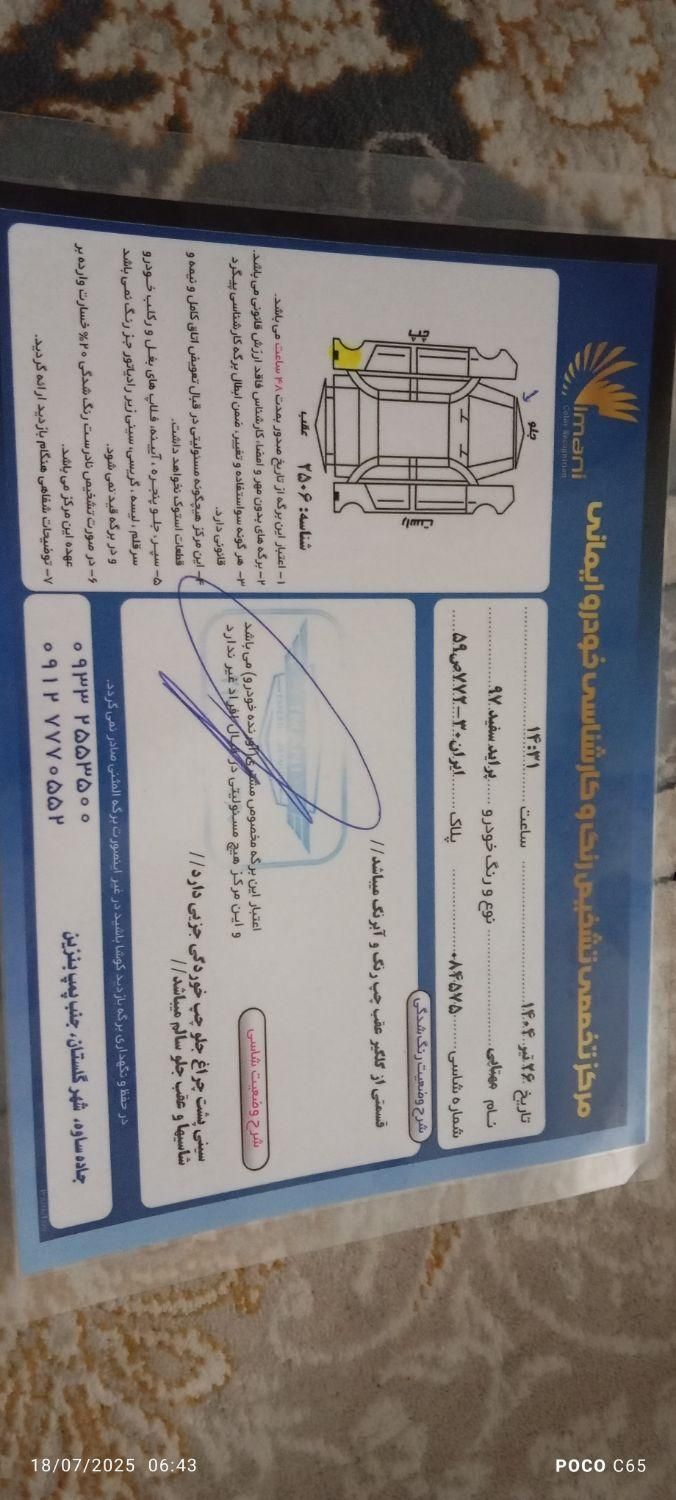 مرکز تخصصی تشخیص رنگ و کارشناسی خودرو ایمانی
Imani
Color Recognition
تاریخ ۲۶ تیر ۱۴۰۴ ساعت ۱۴:۳۱
نام مهتابی نوع و رنگ خودرو پراید سفید ۹۷
شماره شاسی ۰۸۴۵۷۵ پلاک ایران ۳۰-۷۷۲ص۵۹
شرح وضعیت رنگ شدگی
قسمتی از گلگیر عقب چپ رنگ و آبرنگ میباشد//
شرح وضعیت شاسی
سینی پشت چراغ جلو چپ خوردگی جزیی دارد//
شاسیها و عقب جلو سالم میباشد//
اعتبار این برگه مخصوص مشتری (آورنده خودرو) می باشد
و این مرکز هیچ مسئولیتی در قبال افراد غیر ندارد
جلو
چپ
راست
عقب
شناسه: ۲۵۰۶
۱- اعتبار این برگه از تاریخ صدور بمدت ۴۸ ساعت می باشد.
۲- برگه های بدون مهر و امضاء کارشناس فاقد ارزش قانونی می باشد.
۳- هر گونه سواستفاده و تغییر، ضمن ابطال برگه کارشناسی پیگرد
قانونی دارد.
۴- این مرکز هیچگونه مسئولیتی در قبال تعویض اتاق کامل و نیمه و
قطعات استوک نخواهد داشت.
۵- سپر، جلو پنجره، آیینه، فلاپ های بغل و رکاب خودرو
سرقلم، لیسه، گریسی، سینی زیر رادیاتور جز رنگ نمی باشد
و در برگه قید نمی شود.
۶- در صورت تشخیص نادرست رنگ شدگی ۲۰% خسارت وارده بر
عهده این مرکز می باشد.
۷- توضیحات شفاهی هنگام بازدید ارائه گردید.
در حفظ و نگهداری برگه بازدید کوشا باشید در غیر اینصورت برگه المثنی صادر نمی گردد.
جاده ساوه، شهر گلستان، جنب پمپ بنزین
۰۹۳۳ ۲۵۵۳۵۰۰
۰۹۱۲ ۷۷۷۰۵۵۲
18/07/2025 06:43
POCO C65